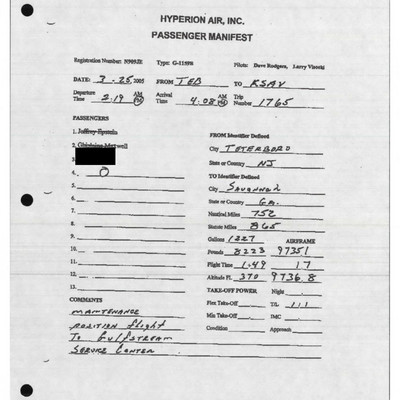 HYPERION AIR, INC.
PASSENGER MANIFEST
Registration Number: N909JE Type: G-1159B Pilots: Dave Rodgers, Larry Visoski
DATE: 3-25, 2005 FROM TEB TO KSAV
Departure Time 2:19 AM PM Arrival Time 4:08 AM PM Trip Number 1765
PASSENGERS
1. Jeffrey Epstein
2. Ghislaine Maxwell
4. 0
5.
6.
7.
8.
9.
10.
11.
12.
13.
COMMENTS
MAINTENANCE
POSITION flight
To Gulfstream
SERVICE CENTER
FROM Identifier Defined
City TETERBORO
State or Country NJ
TO Identifier Defined
City SAVANNAH
State or Country GA.
Nautical Miles 752
Statute Miles 865
Gallons 1227 AIRFRAME
Pounds 8223 97351
Flight Time 1:49 17
Altitude FL 370 9736.8
TAKE-OFF POWER Night
Flex Take-Off T/L 1/1
Min Take-Off IMC
Condition Approach